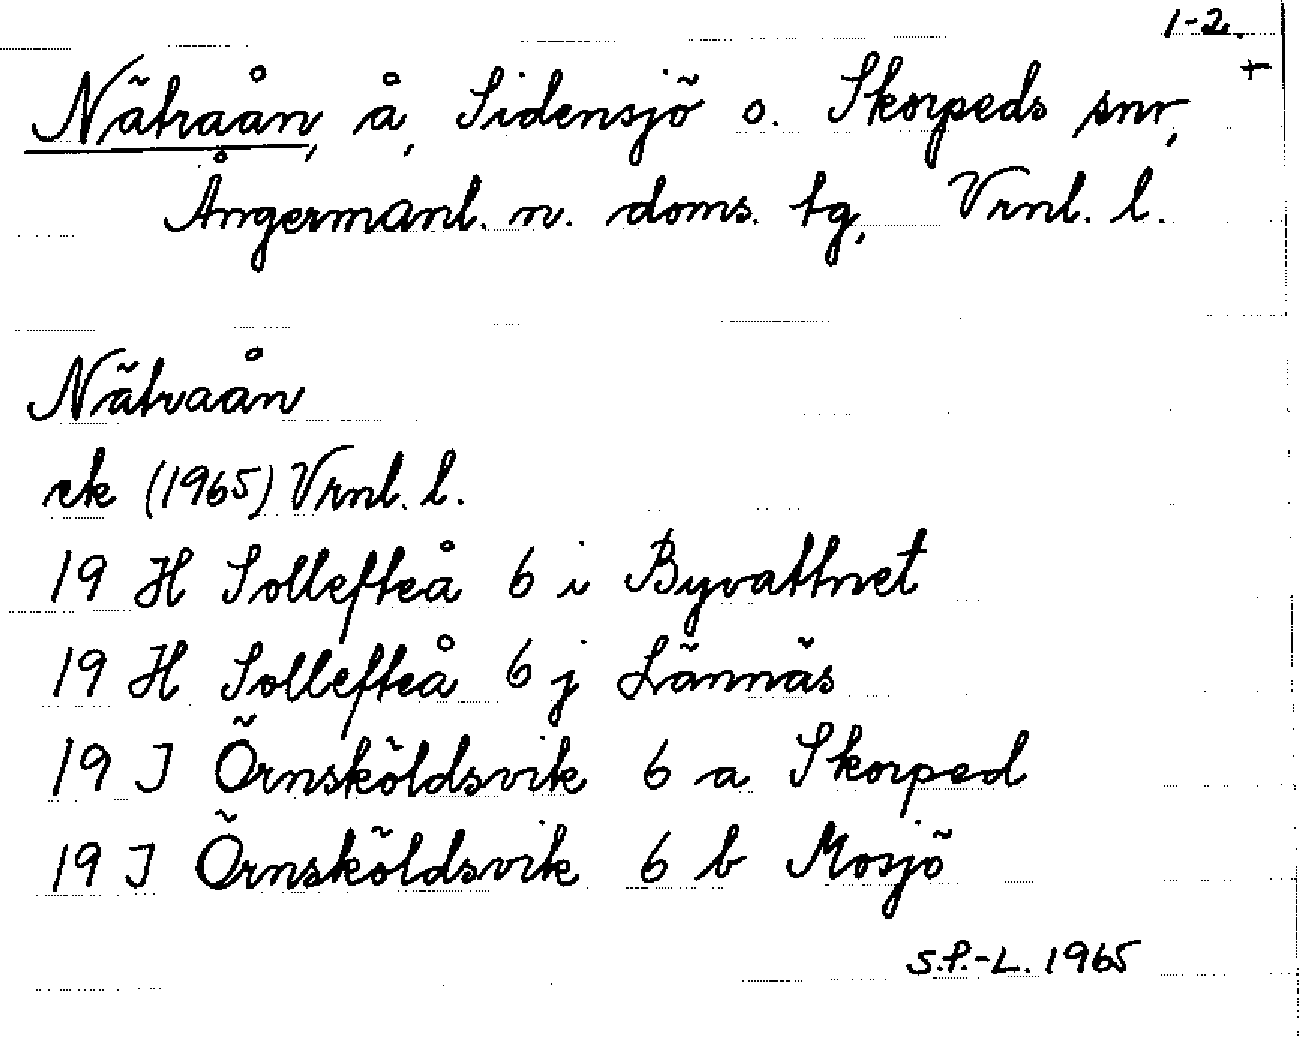 1-2.
+
Nätraån, å, Sidensjö o. Skorpeds snr,
Ångermanl. n. doms. tg, Vrnl. l.
Nätraån
ek (1965) Vrnl. l.
19 H Sollefteå 6 i Byvattnet
19 H Sollefteå 6 j Lännäs
19 J Örnsköldsvik 6 a Skorped
19 J Örnsköldsvik 6 b Mosjö
S.P.-L. 1965